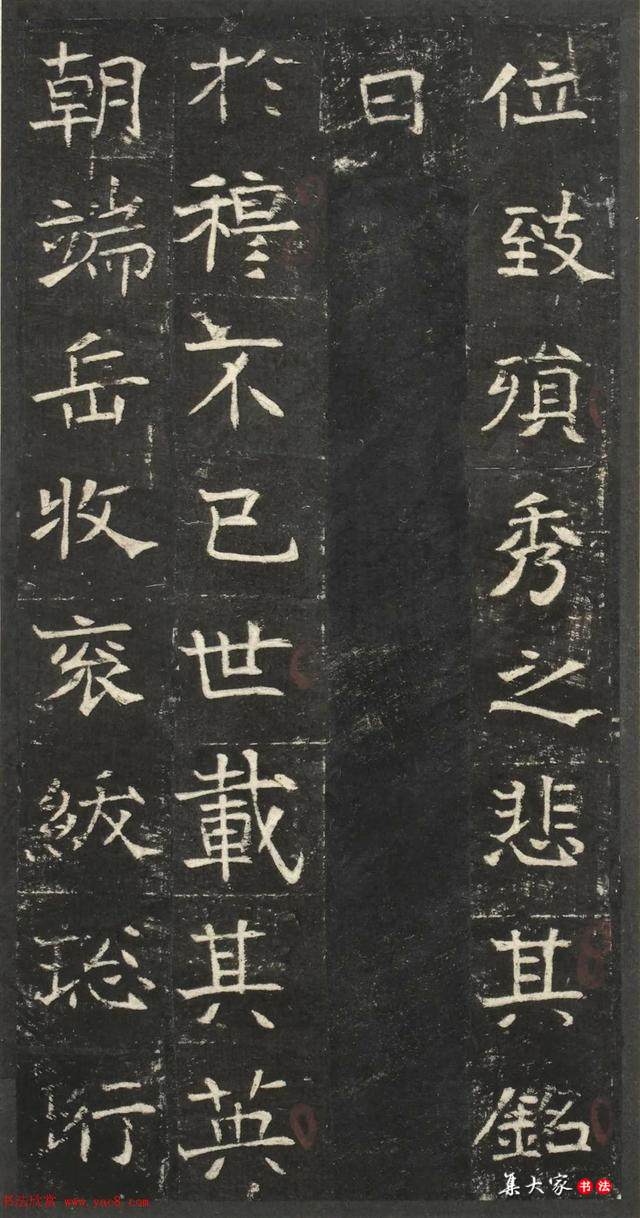 位致殞秀之悲其銘
曰
於穆不已世載其英
朝端岳收袞紱珩
集大家書法
书法欣赏 www.yac8.com